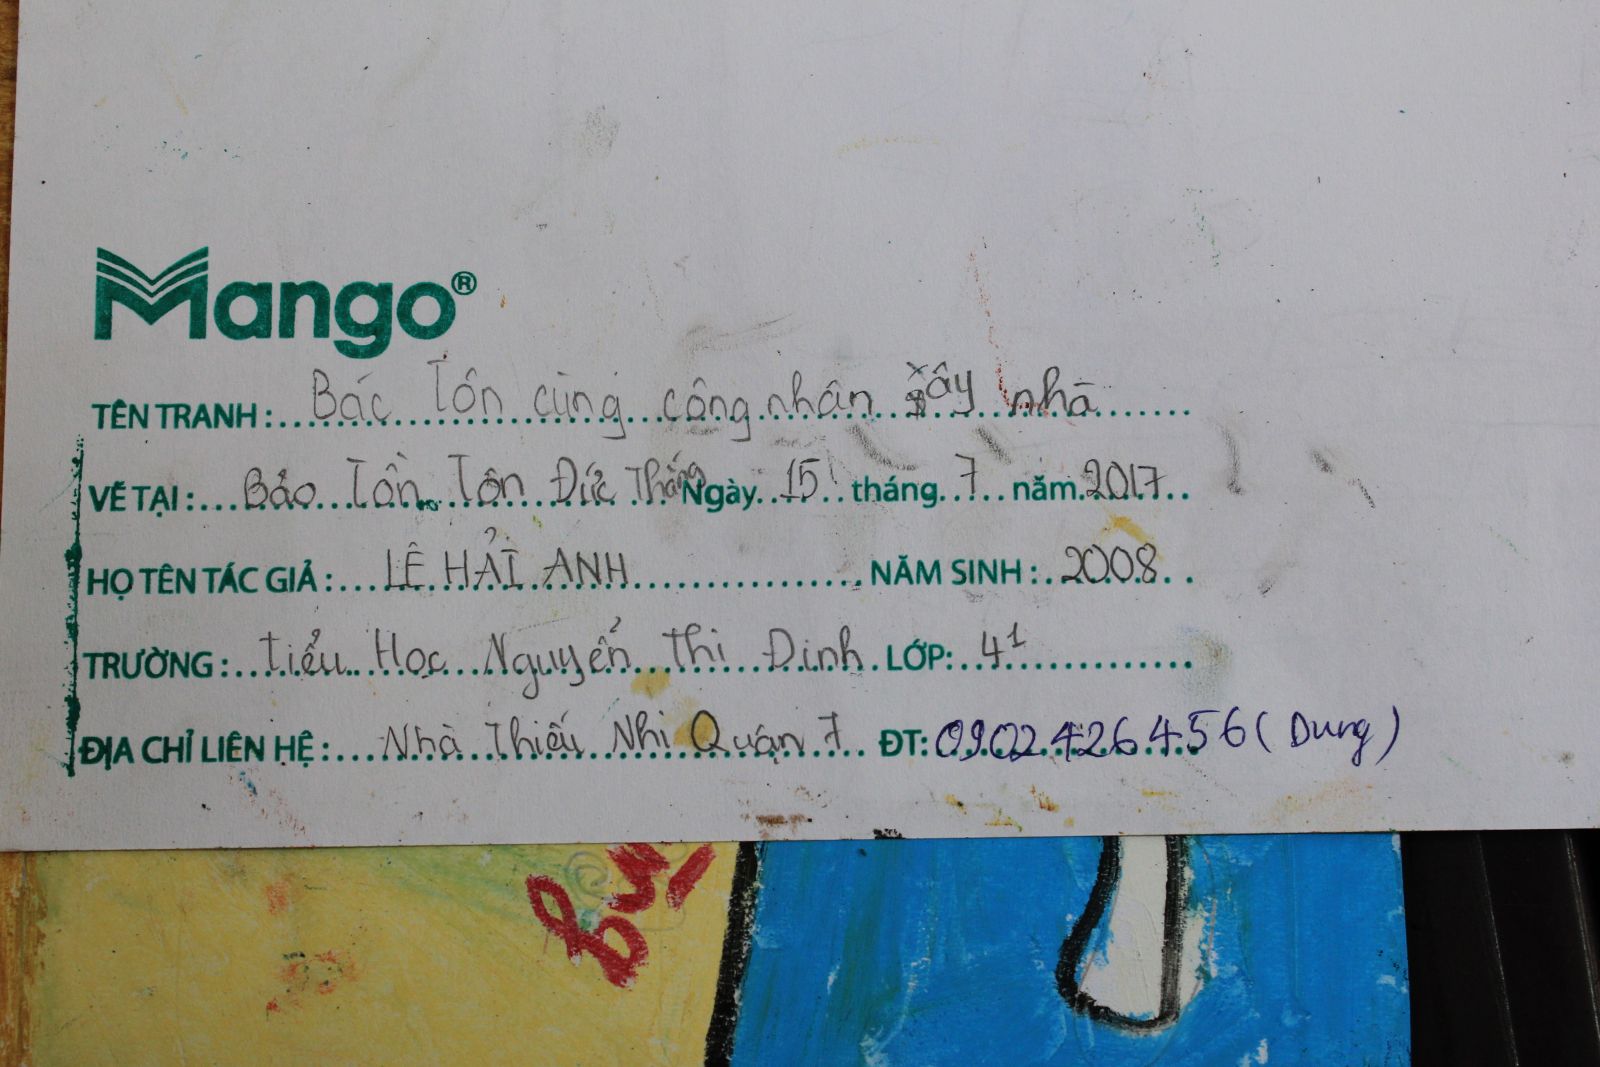 Mango®
TÊN TRANH: Bác Tôn cùng công nhân xây nhà
VẼ TẠI: Bảo Tồn Tôn Đức Thắng Ngày 15 tháng 7 năm 2017
HỌ TÊN TÁC GIẢ: LÊ HẢI ANH NĂM SINH: 2008
TRƯỜNG: Tiểu Học Nguyễn Thi Đinh LỚP: 4¹
ĐỊA CHỈ LIÊN HỆ: Nhà Thiếu Nhi Quận 7 ĐT: 0902426456 (Dung)